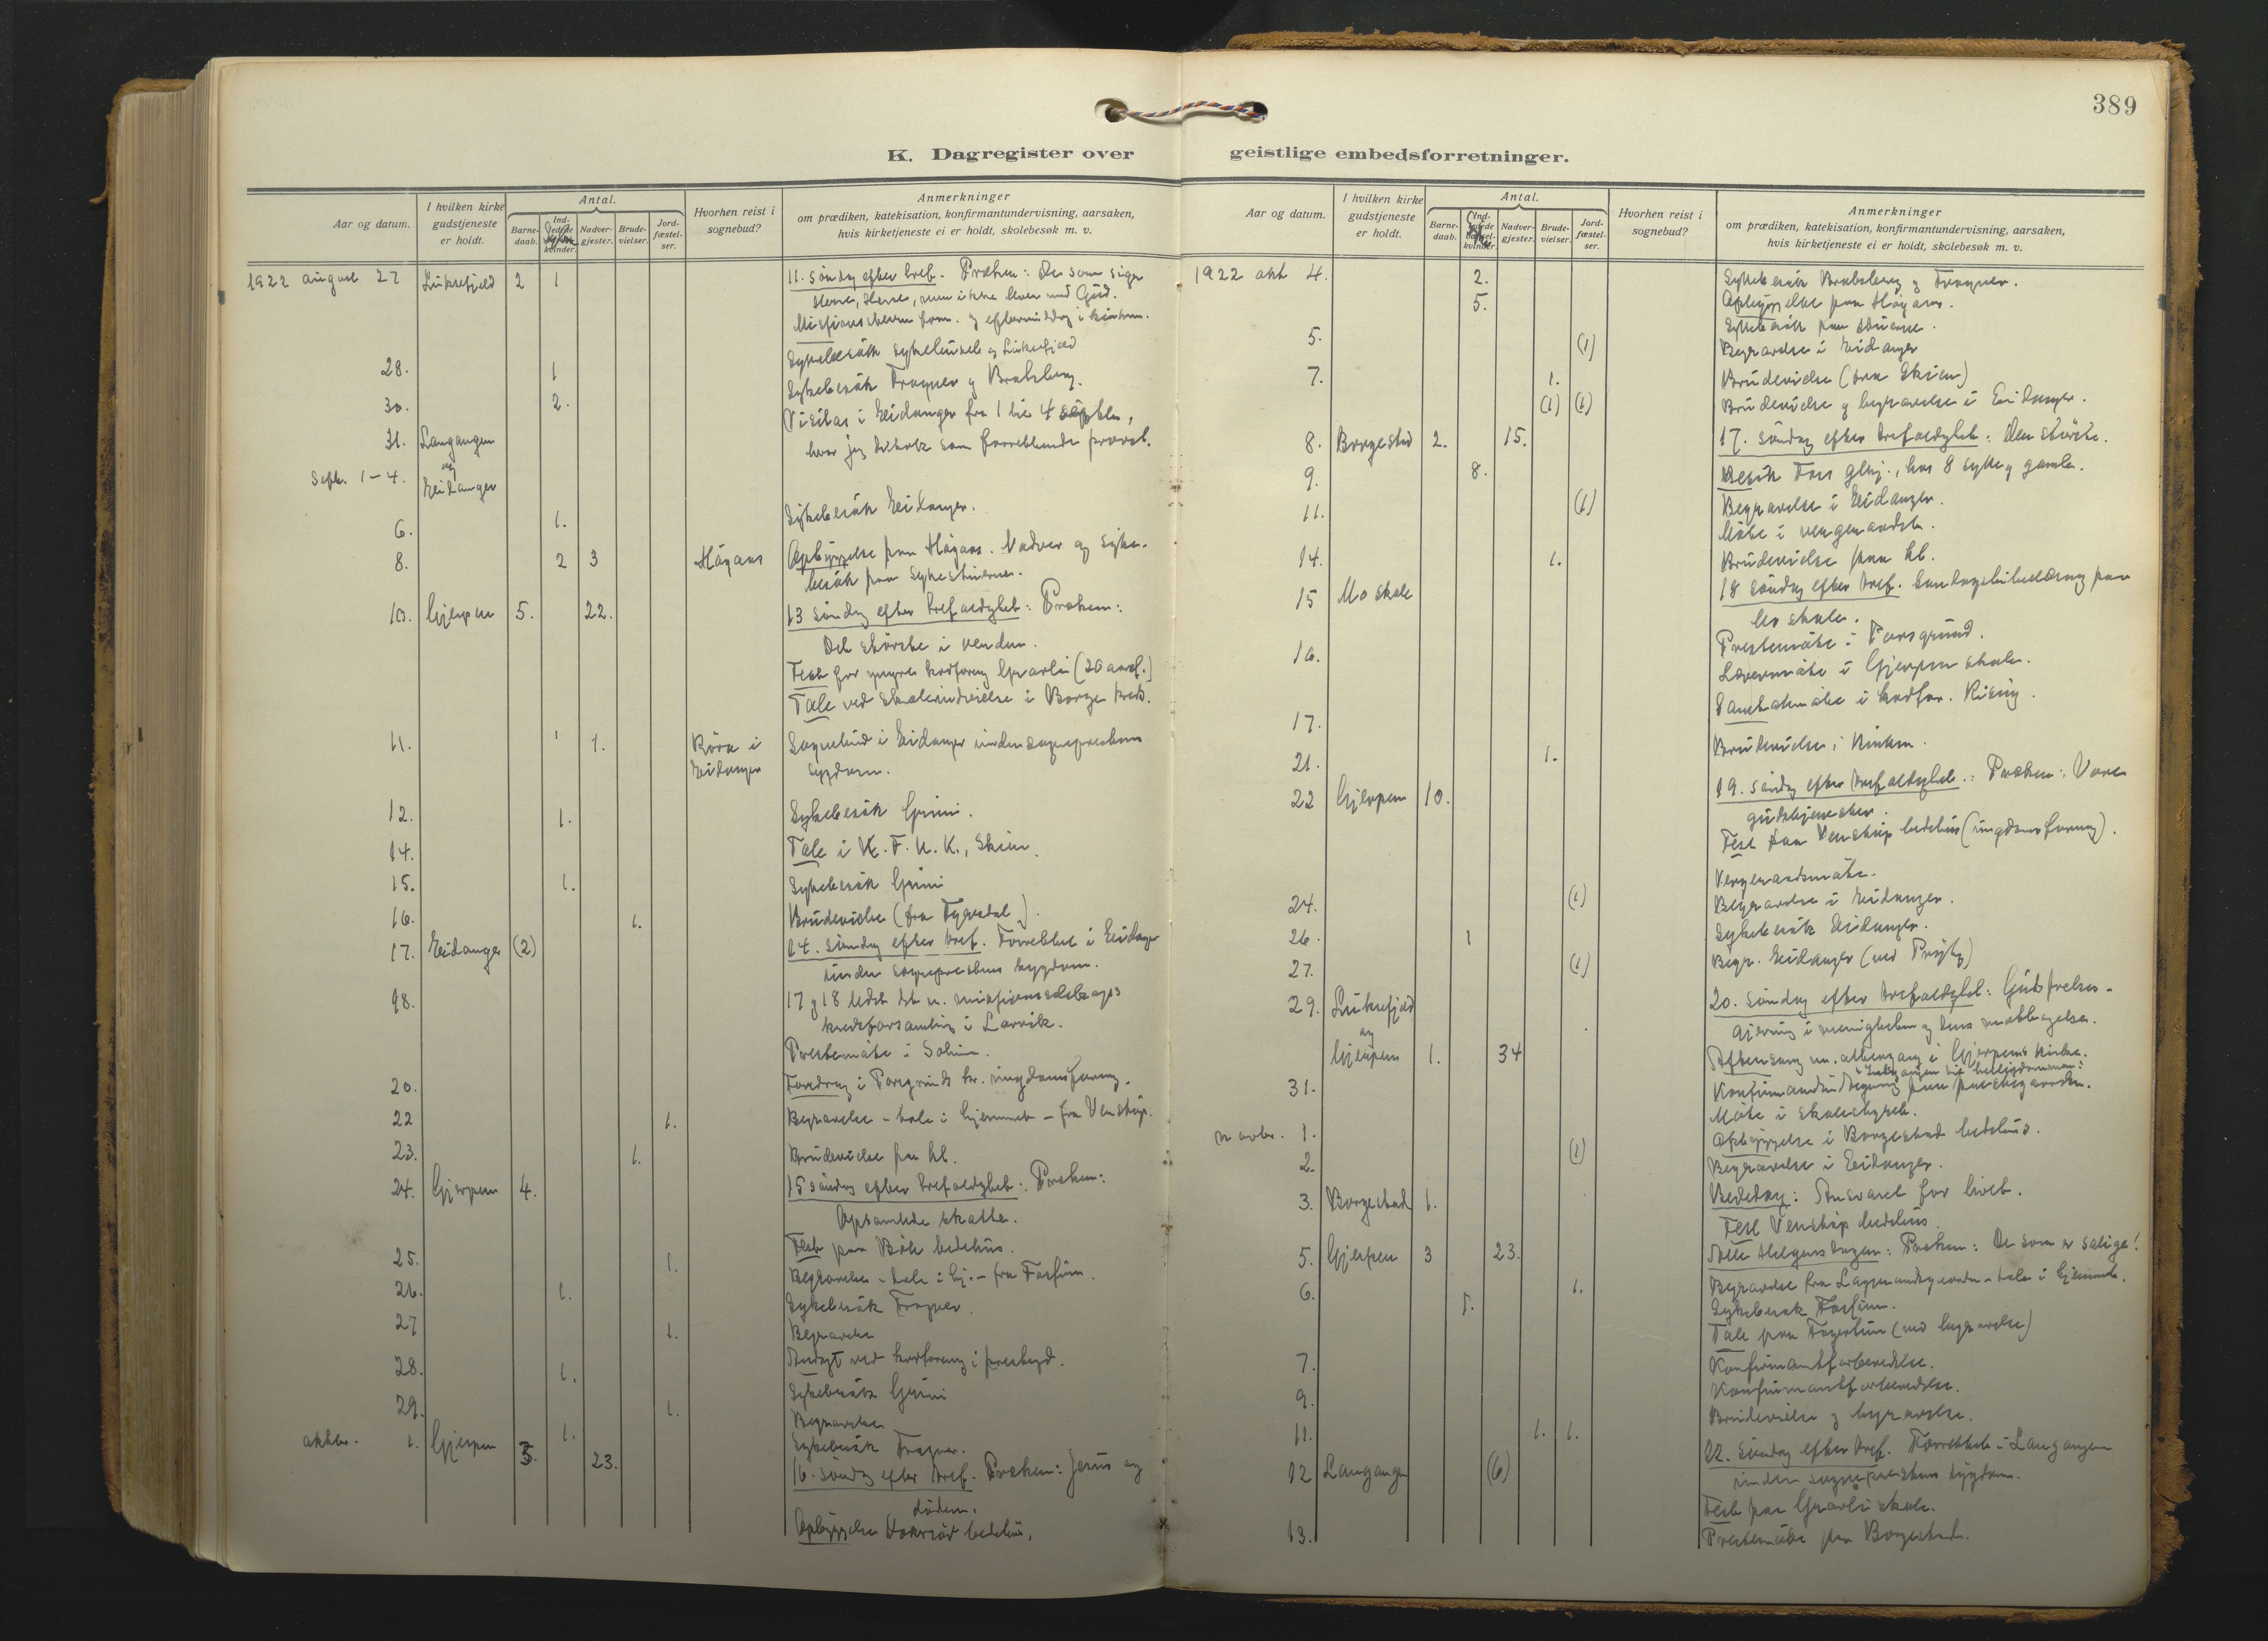 389
K. Dagregister over
geistlige embedsforretninger.
Aar og datum.
I hvilken kirke gudstjeneste er holdt.
Antal.
Barne-daab.
Ind-ledede kvinder.
Nadver-gjester.
Brude-vielser.
Jord-fæstel-ser.
Hvorhen reist i sognebud?
Anmerkninger
om prædiken, katekisation, konfirmantundervisning, aarsaken,
hvis kirketjeneste ei er holdt, skolebesøk m. v.
1922 august 27 Luksefjeld 2 1 11. søndag efter tref. Præken: De som siger
Herre, Herre, men ikke lever med Gud.
Missionsstevne form. og eftermiddag i kirken.
Sykebesøk og Luksefjeld
28. 1 Sykebesøk Frogner og Bratsberg.
30. 2. Visitas i Eidanger fra 1 til 4 septbr,
31. Langangen hvor jeg deltok som forrettende provst.
Sept. 1-4. og Eidanger
6. 1. Sykebesøk Eidanger.
8. 2 3 Høgaas Opbyggelse paa Høgaas. Nadver og syke-
besøk paa sykestuerne.
10. Gjerpen 5. 22. 13 søndag efter trefoldighet: Præken:
Det største i verden.
Fest for yngres kvdforening Graatli (20 aarsf.)
Tale ved skoleindvielse i Borge kreds.
11. 1 1. Böra i Eidanger Sognebud i Eidanger under sogneprestens
sygdom.
12. 1. Sykebesøk Grini.
14. Tale i K. F. U. K., Skien.
15. 1. Sykebesøk Grini
16. 1. Brudevielse (fra Fyresdal).
17. Eidanger (2) 14. søndag efter tref. Forrettet i Eidanger
under sogneprestens sygdom.
18. 17 og 18 ledet det n. missionsselskaps
kredsforsamling i Larvik.
Prestemøte i Solum.
20. Foredrag i Porsgrunds kr. ungdomsforening.
22 1. Begravelse - tale i hjemmet - fra Venstøp.
23. 1. Brudevielse paa kl.
24. Gjerpen 4. 15 søndag efter trefoldighet: Præken:
Opsamlede skatter.
Fest paa Bøle bedehus.
25. 1. Begravelse - tale i hj. - fra Fossum.
26. 1. Sykebesøk Frogner.
27 1. Begravelse
Andagt ved kvdforening i prestegd.
28. 1. Sykebesøk Grini
29. 1. Begravelse
1. Sykebesøk Frogner.
oktbr. 1. Gjerpen 3. 23. 16. søndag efter tref. Præken: Jesus og
døden.
Opbyggelse bedehus.
Aar og datum.
I hvilken kirke gudstjeneste er holdt.
Antal.
Barne-daab.
Ind-ledede barsel-kvinder.
Nadver-gjester.
Brude-vielser.
Jord-fæstel-ser.
Hvorhen reist i sognebud?
Anmerkninger
om prædiken, katekisation, konfirmantundervisning, aarsaken,
hvis kirketjeneste ei er holdt, skolebesøk m. v.
1922 okt 4. 2. Sykebesøk Bratsberg og Frogner.
5. Opbyggelse paa Høgaas.
Sykebesøk paa stuerne.
5. (1) Begravelse i Eidanger
7. 1. Brudevielse (fra Skien)
(1) (1) Brudevielse og begravelse i Eidanger.
8. Borgestad 2. 15. 17. søndag efter trefoldighet: Den største.
9. 8. Besøk Fors glhj., hos 8 syke og gamle.
11. (1) Begravelse i Eidanger.
Møte i vergeraadet.
14. 1. Brudevielse paa kl.
15 Mo skole 18 søndag efter tref. Søndagsbibellæsning paa
Mo skole.
16. Prestemøte i Porsgrund.
Lærermøte i Gjerpen skole.
17. i kvdfor. Rising.
21. 1. Brudevielse i kirken.
22 Gjerpen 10. 19. søndag efter trefoldighet: Præken: Vore
gudstjenester.
Fest paa Venstøp bedehus (ungdomsforening).
Vergeraadsmøte.
24. (1) Begravelse i Eidanger.
26. 1 Sykebesøk Eidanger.
27. (1) Begr. Eidanger
29. Luksefjeld 20. søndag efter trefoldighet: Guds frelses-
og gjerning i menigheten og dens mottagelse.
Gjerpen 1. 34 Aftensang m. altergang i Gjerpens kirke.
31. Konfirmandindtegning paa prestegaarden.
Møte i skolestyret.
novbr. 1. Opbyggelse i Borgestad bedehus.
2. (1) Begravelse i Eidanger.
3. Borgestad 1. Bededag: Ansvaret for livet.
Fest Venstøp bedehus.
5. Gjerpen 3 23. Alle Helgens dagen: Præken: De som er salige!
6. 1. Begravelse fra - tale i hjemmet.
1. Sykebesøk Fossum.
Tale paa (ved begravelse)
7. Konfirmantforberedelse.
9. Konfirmantforberedelse.
11. 1. 1. Brudevielse og begravelse.
12 Langangen (6) 22. søndag efter tref. Forrettet i Langangen
under sogneprestens sygdom.
Fest paa Graatli skole.
13. Prestemøte paa Borgestad.